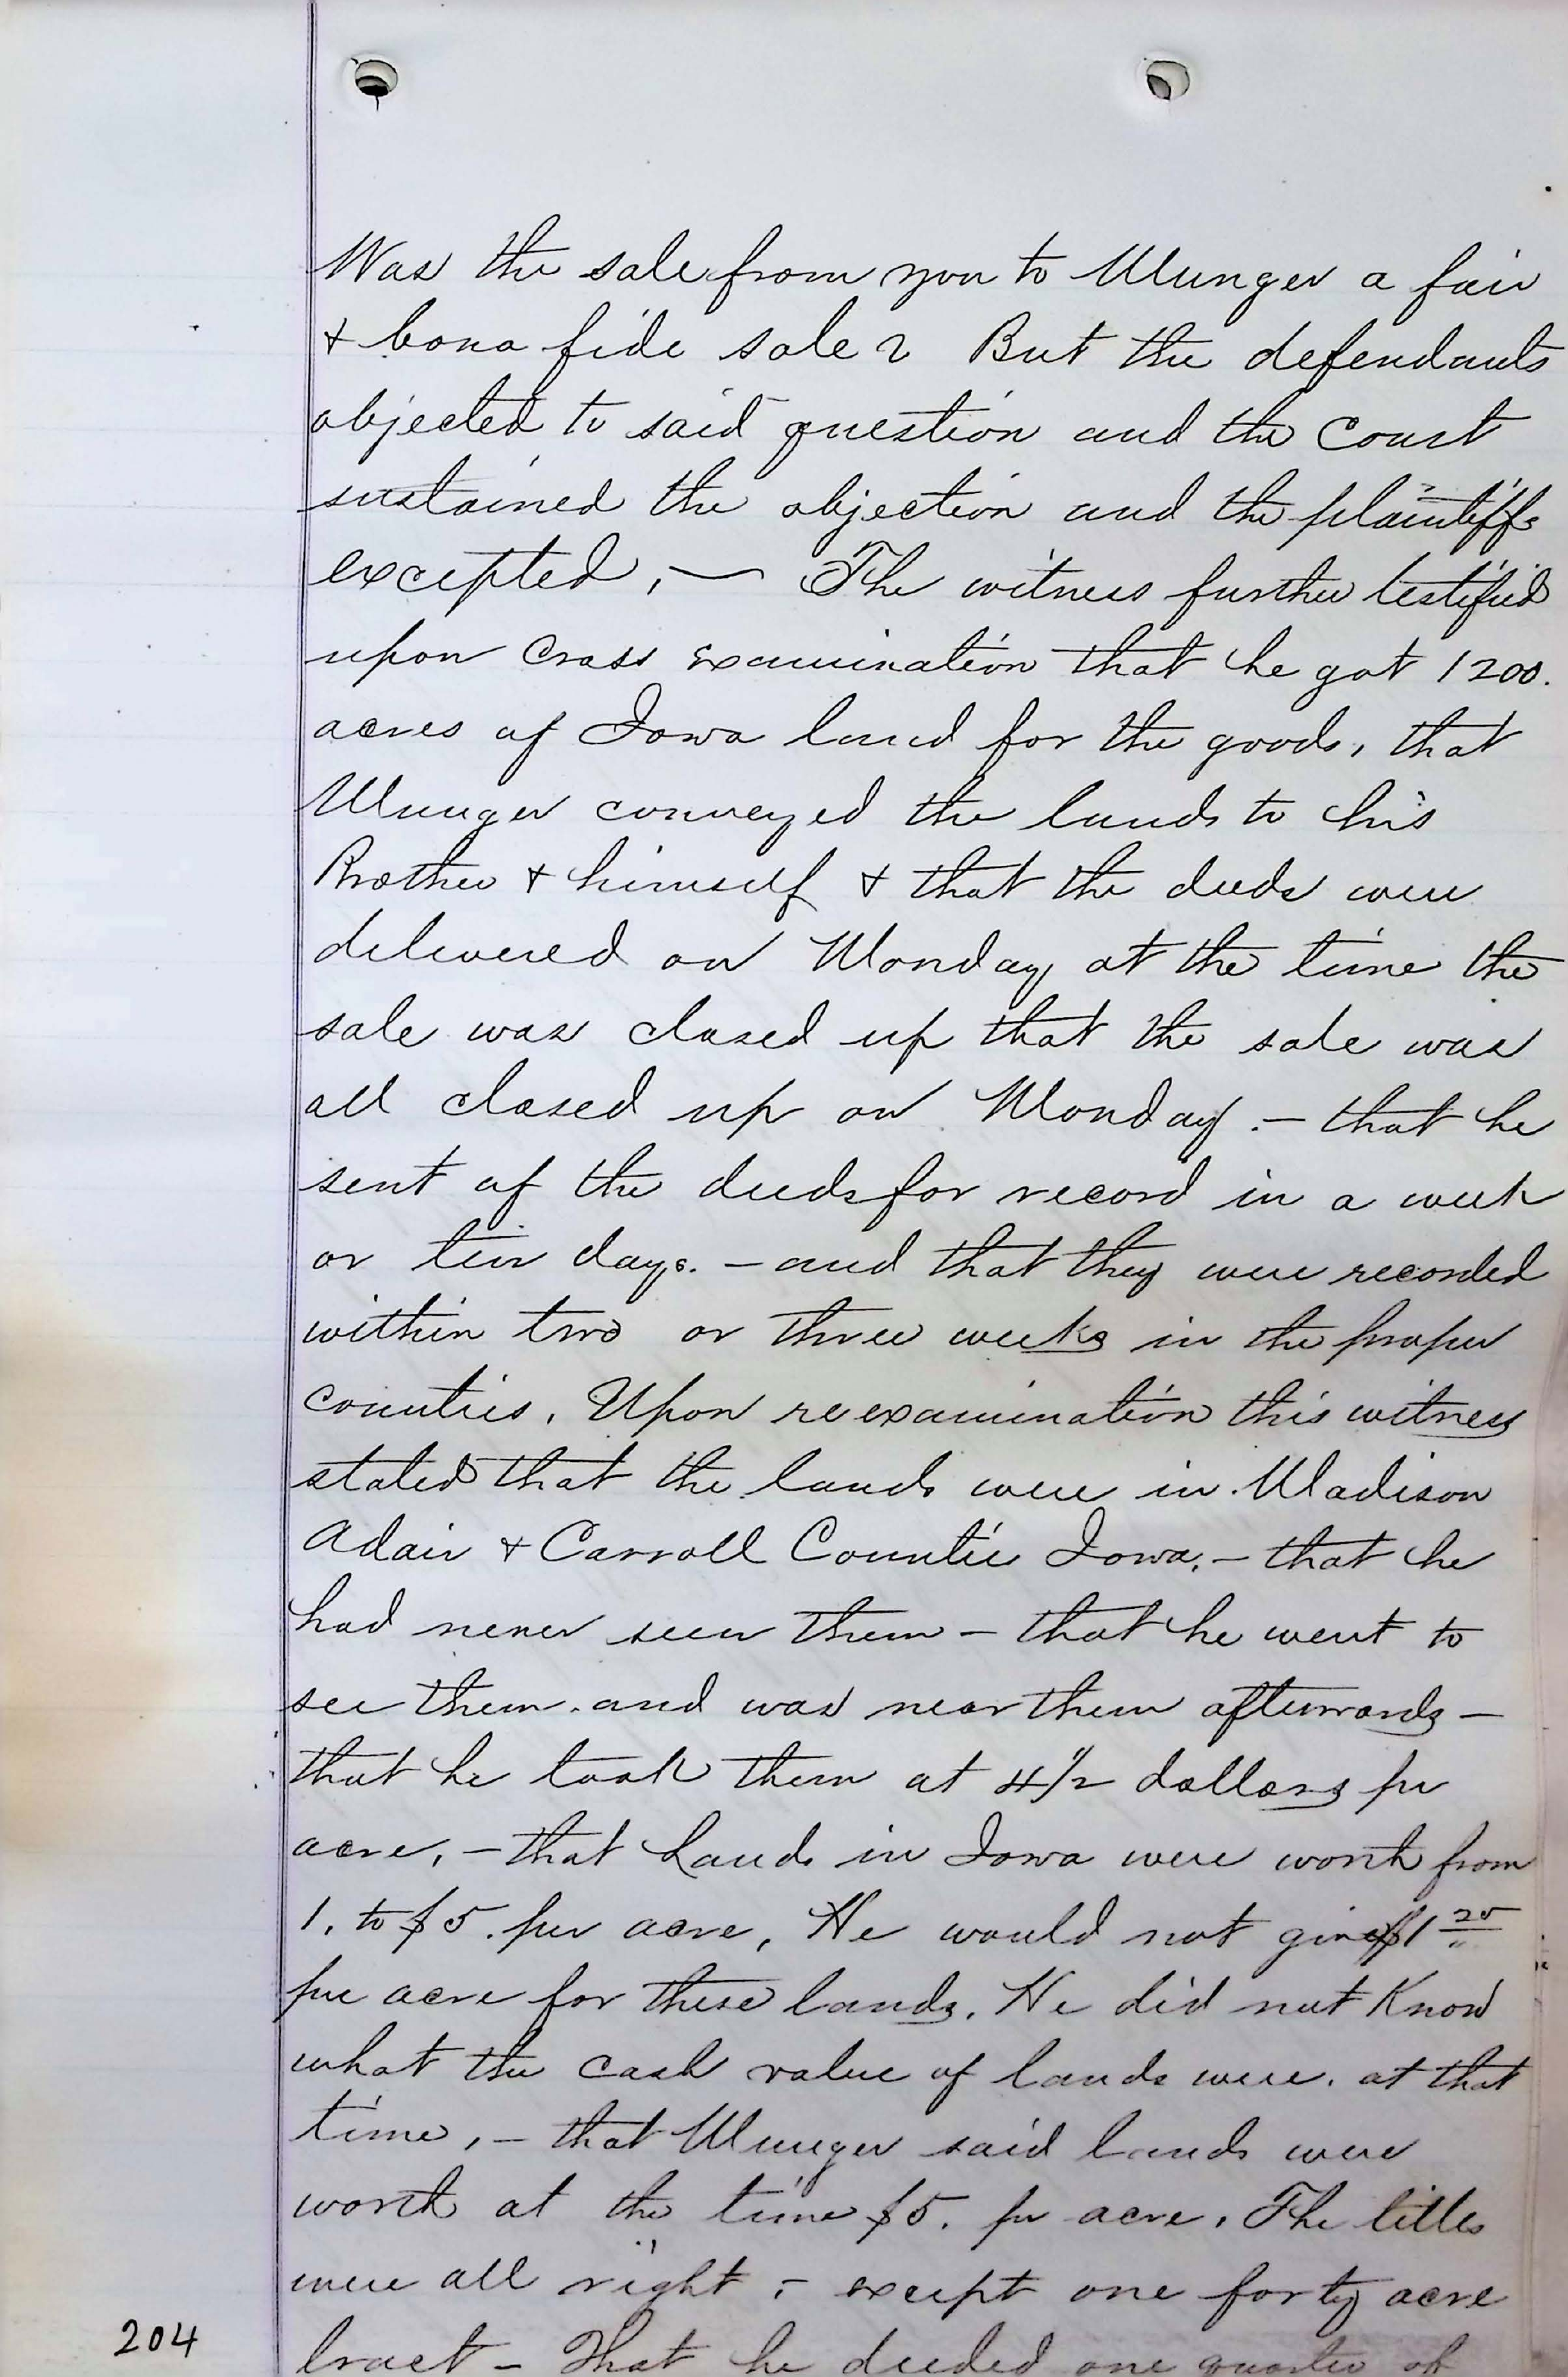 Was the sale from you to Munger a fair
& bona fide sale? But the defendants
objected to said question and the Court
sustained the objection and the plaintiffs
excepted, — The witness further testified
upon Cross examination that he got 1200.
acres of Iowa land for the goods, that
Munger conveyed the lands to his
Brother & himself & that the deeds were
delivered on Monday at the time the
sale was closed up that the sale was
all closed up on Monday. — that he
sent of the deeds for record in a week
or ten days. — and that they were recorded
within two or three weeks in the proper
counties. Upon reexamination this witness
stated that the lands were in Madison
Adair & Carroll Counties Iowa. — that he
had never seen them — that he went to
see them. and was near them afterwards —
that he took them at 4 1/2 dollars per
acre, — that Lands in Iowa were worth from
1. to $5. per acre, He would not give $1 25
per acre for these lands. He did not Know
what the cash value of lands were. at that
time, — that Munger said lands were
worth at the time $5. per acre. The titles
were all right, — except one forty acre
tract — That he deeded one quarter of
204